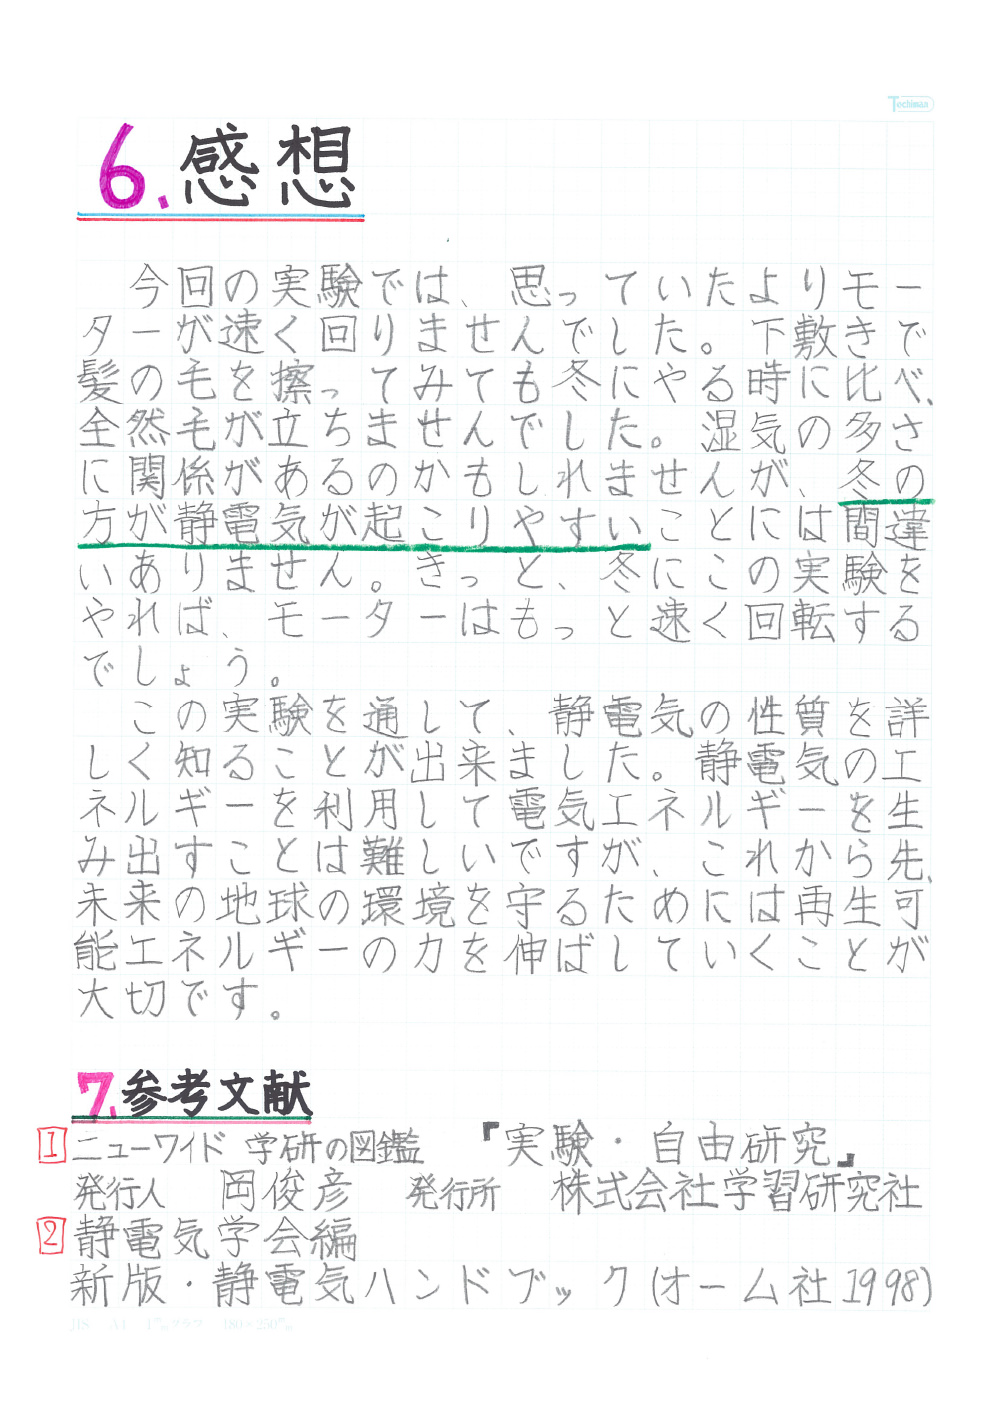 Techimaa
6.感想
今回の実験では、思っていたよりモー
ターが速く回りませんでした。下敷きで
髪の毛を擦ってみても冬にやる時に比べ、
全然毛が立ちませんでした。湿気の多さ
に関係があるのかもしれませんが、冬の
方が静電気が起こりやすいことには間違
いありません。きっと、冬にこの実験を
やれば、モーターはもっと速く回転する
でしょう。
この実験を通して、静電気の性質を詳
しく知ることが出来ました。静電気のエ
ネルギーを利用して電気エネルギーを生
み出すことは難しいですが、これから先、
未来の地球の環境を守るためには再生可
能エネルギーの力を伸ばしていくことが
大切です。
7.参考文献
1 ニューワイド 学研の図鑑 『実験・自由研究』
発行人 岡俊彦 発行所 株式会社学習研究社
2 静電気学会編
新版・静電気ハンドブック(オーム社1998)
JIS A4 1㎜グラフ 180×250㎜